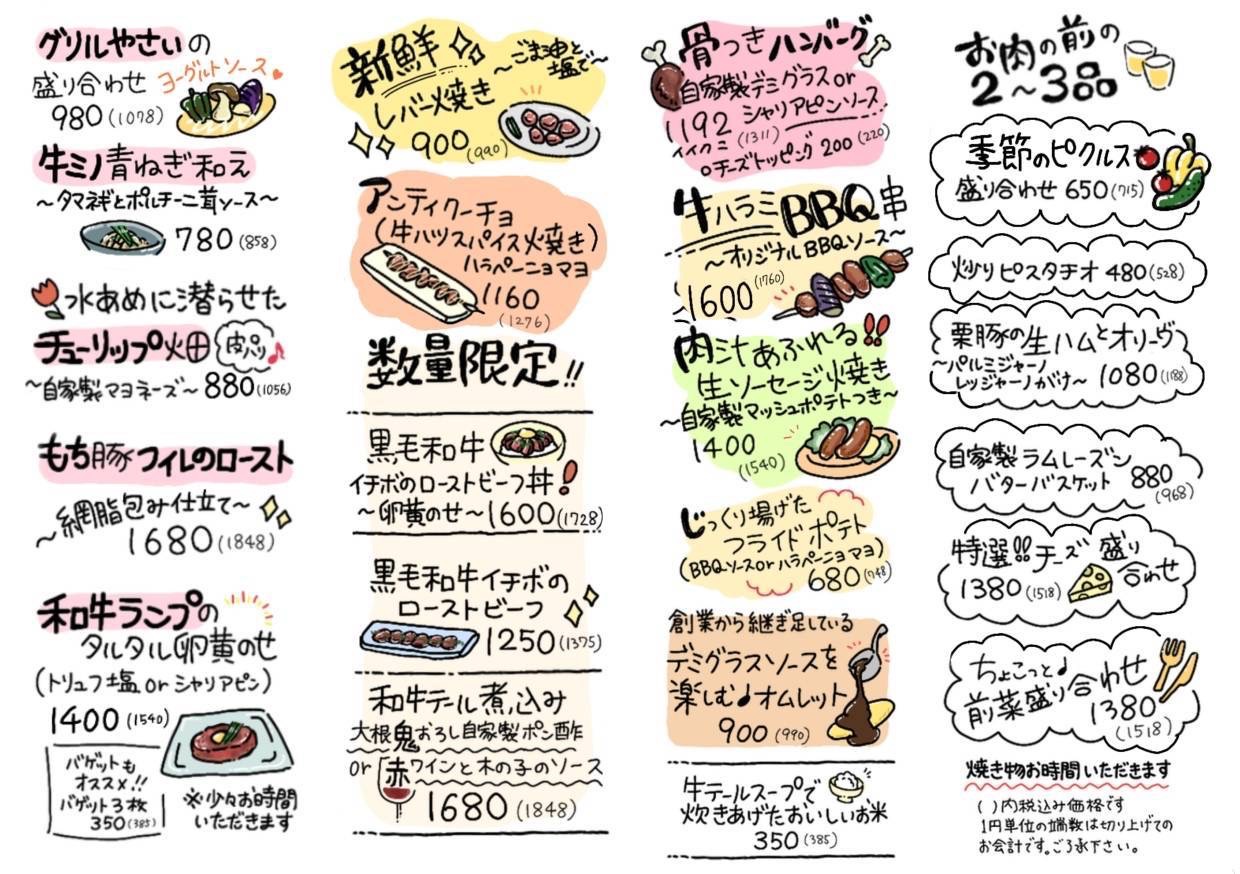 グリルやさいの
盛り合わせ ヨーグルトソース
980(1078)
牛ミノ青ねぎ和え
～タマネギとポルチーニ茸ソース～
780(858)
水あめに潜らせた
チューリップ畑 皮パリ♪
～自家製マヨネーズ～ 880(1056)
もち豚フィレのロースト
～網脂包み仕立て～
1680(1848)
和牛ランプの
タルタル卵黄のせ
(トリュフ塩 or シャリアピン)
1400(1540)
バゲットも
オススメ!!
バゲット3枚
350(385)
※少々お時間
いただきます
新鮮 ～ごま油と
塩で～
レバー焼き
900(990)
アンティクーチョ
(牛ハツスパイス火焼き)
ハラペーニョマヨ
1160
(1276)
数量限定!!
黒毛和牛
イチボのローストビーフ丼!
～卵黄のせ～1600(1728)
黒毛和牛イチボの
ローストビーフ
1250(1375)
和牛テール煮込み
大根鬼おろし自家製ポン酢
or 赤ワインと木の子のソース
1680(1848)
骨つきハンバーグ
自家製デミグラス or
シャリアピンソース
1192(1311)
イイクニ
○チーズトッピング 200(220)
牛ハラミBBQ串
～オリジナルBBQソース～
1600(1760)
肉汁あふれる!!
生ソーセージ焼き
～自家製マッシュポテトつき～
1400
(1540)
じっくり揚げた
フライドポテト
(BBQソース or ハラペーニョマヨ)
680(748)
創業から継ぎ足している
デミグラスソースを
楽しむ♩オムレット
900(990)
牛テールスープで
炊きあげたおいしいお米
350(385)
お肉の前の
2～3品
季節のピクルス
盛り合わせ 650(715)
炒りピスタチオ 480(528)
栗豚の生ハムとオリーヴ
～パルミジャーノ
レッジャーノがけ～ 1080(1188)
自家製ラムレーズン
バターバスケット 880
(968)
特選!!チーズ盛り
合わせ
1380(1518)
ちょこっと♩
前菜盛り合わせ
1380
(1518)
焼き物お時間いただきます
( )内税込み価格です
1円単位の端数は切り上げての
お会計です。ご了承下さい。